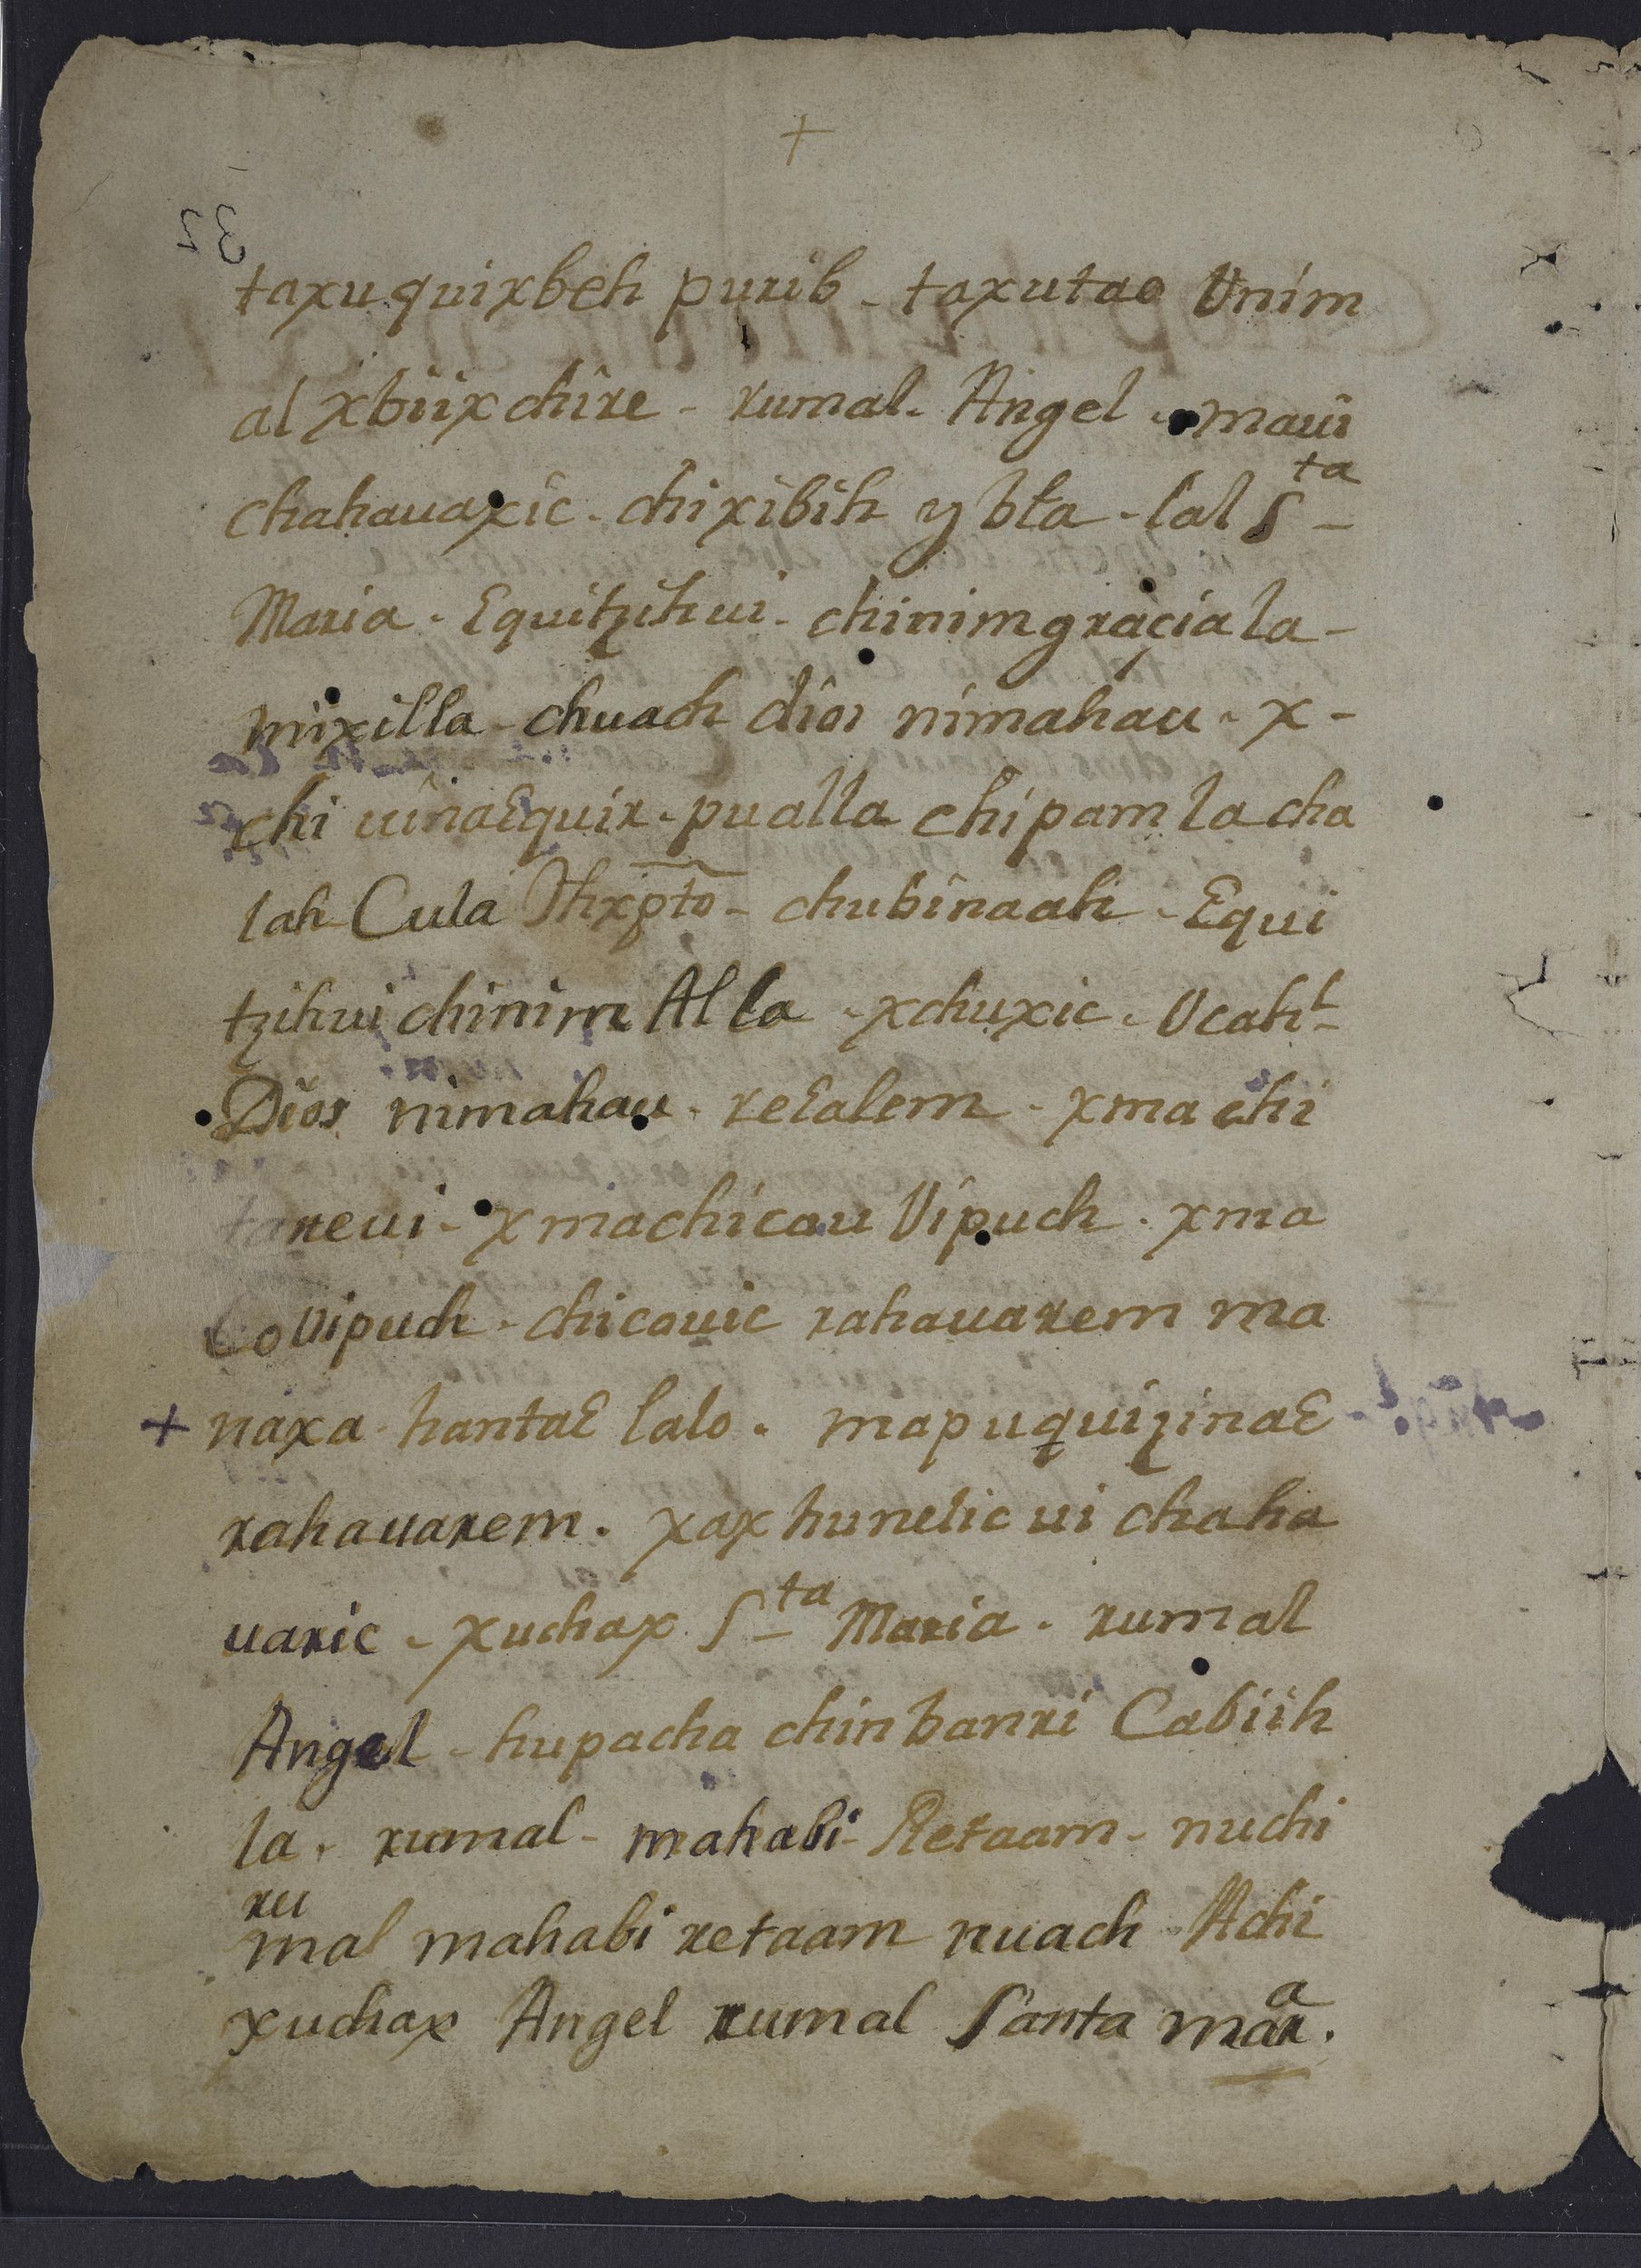 +
32
taxuquixbeh purib - taxutao Vnim
al xbiixchire - rumal. Angel - maui
chahauaxic. chixibih ybta - lal S^ta -
Maria. Ɛquitzihui. chinimgraçiala -
mixilla - chuach dios nimahau - x -
chi uinaƐquir. pualla chipam la cha
lah Cula Jhxpto - chubinaah - Ɛqui
tzihui chinim Alla - xchuxic. Ocah^l -
Dios nimahau. reƐalem - xma chi
tareui - xmachicau Vipuch. xma
Co Vipuch - chicouic rahauarem ma
+ naxa hantaƐ lalo. mapuquizinaƐ
rahauarem. xax hunelic ui chaha
uaric - xuchax S^ta Maria. rumal
Angel - hupacha chinbanri Cabiih
la. rumal - mahabi - Retaam - nuchi
ru
mal mahabi retaam nuach Achi
xuchax Angel rumal Santa mar^a.